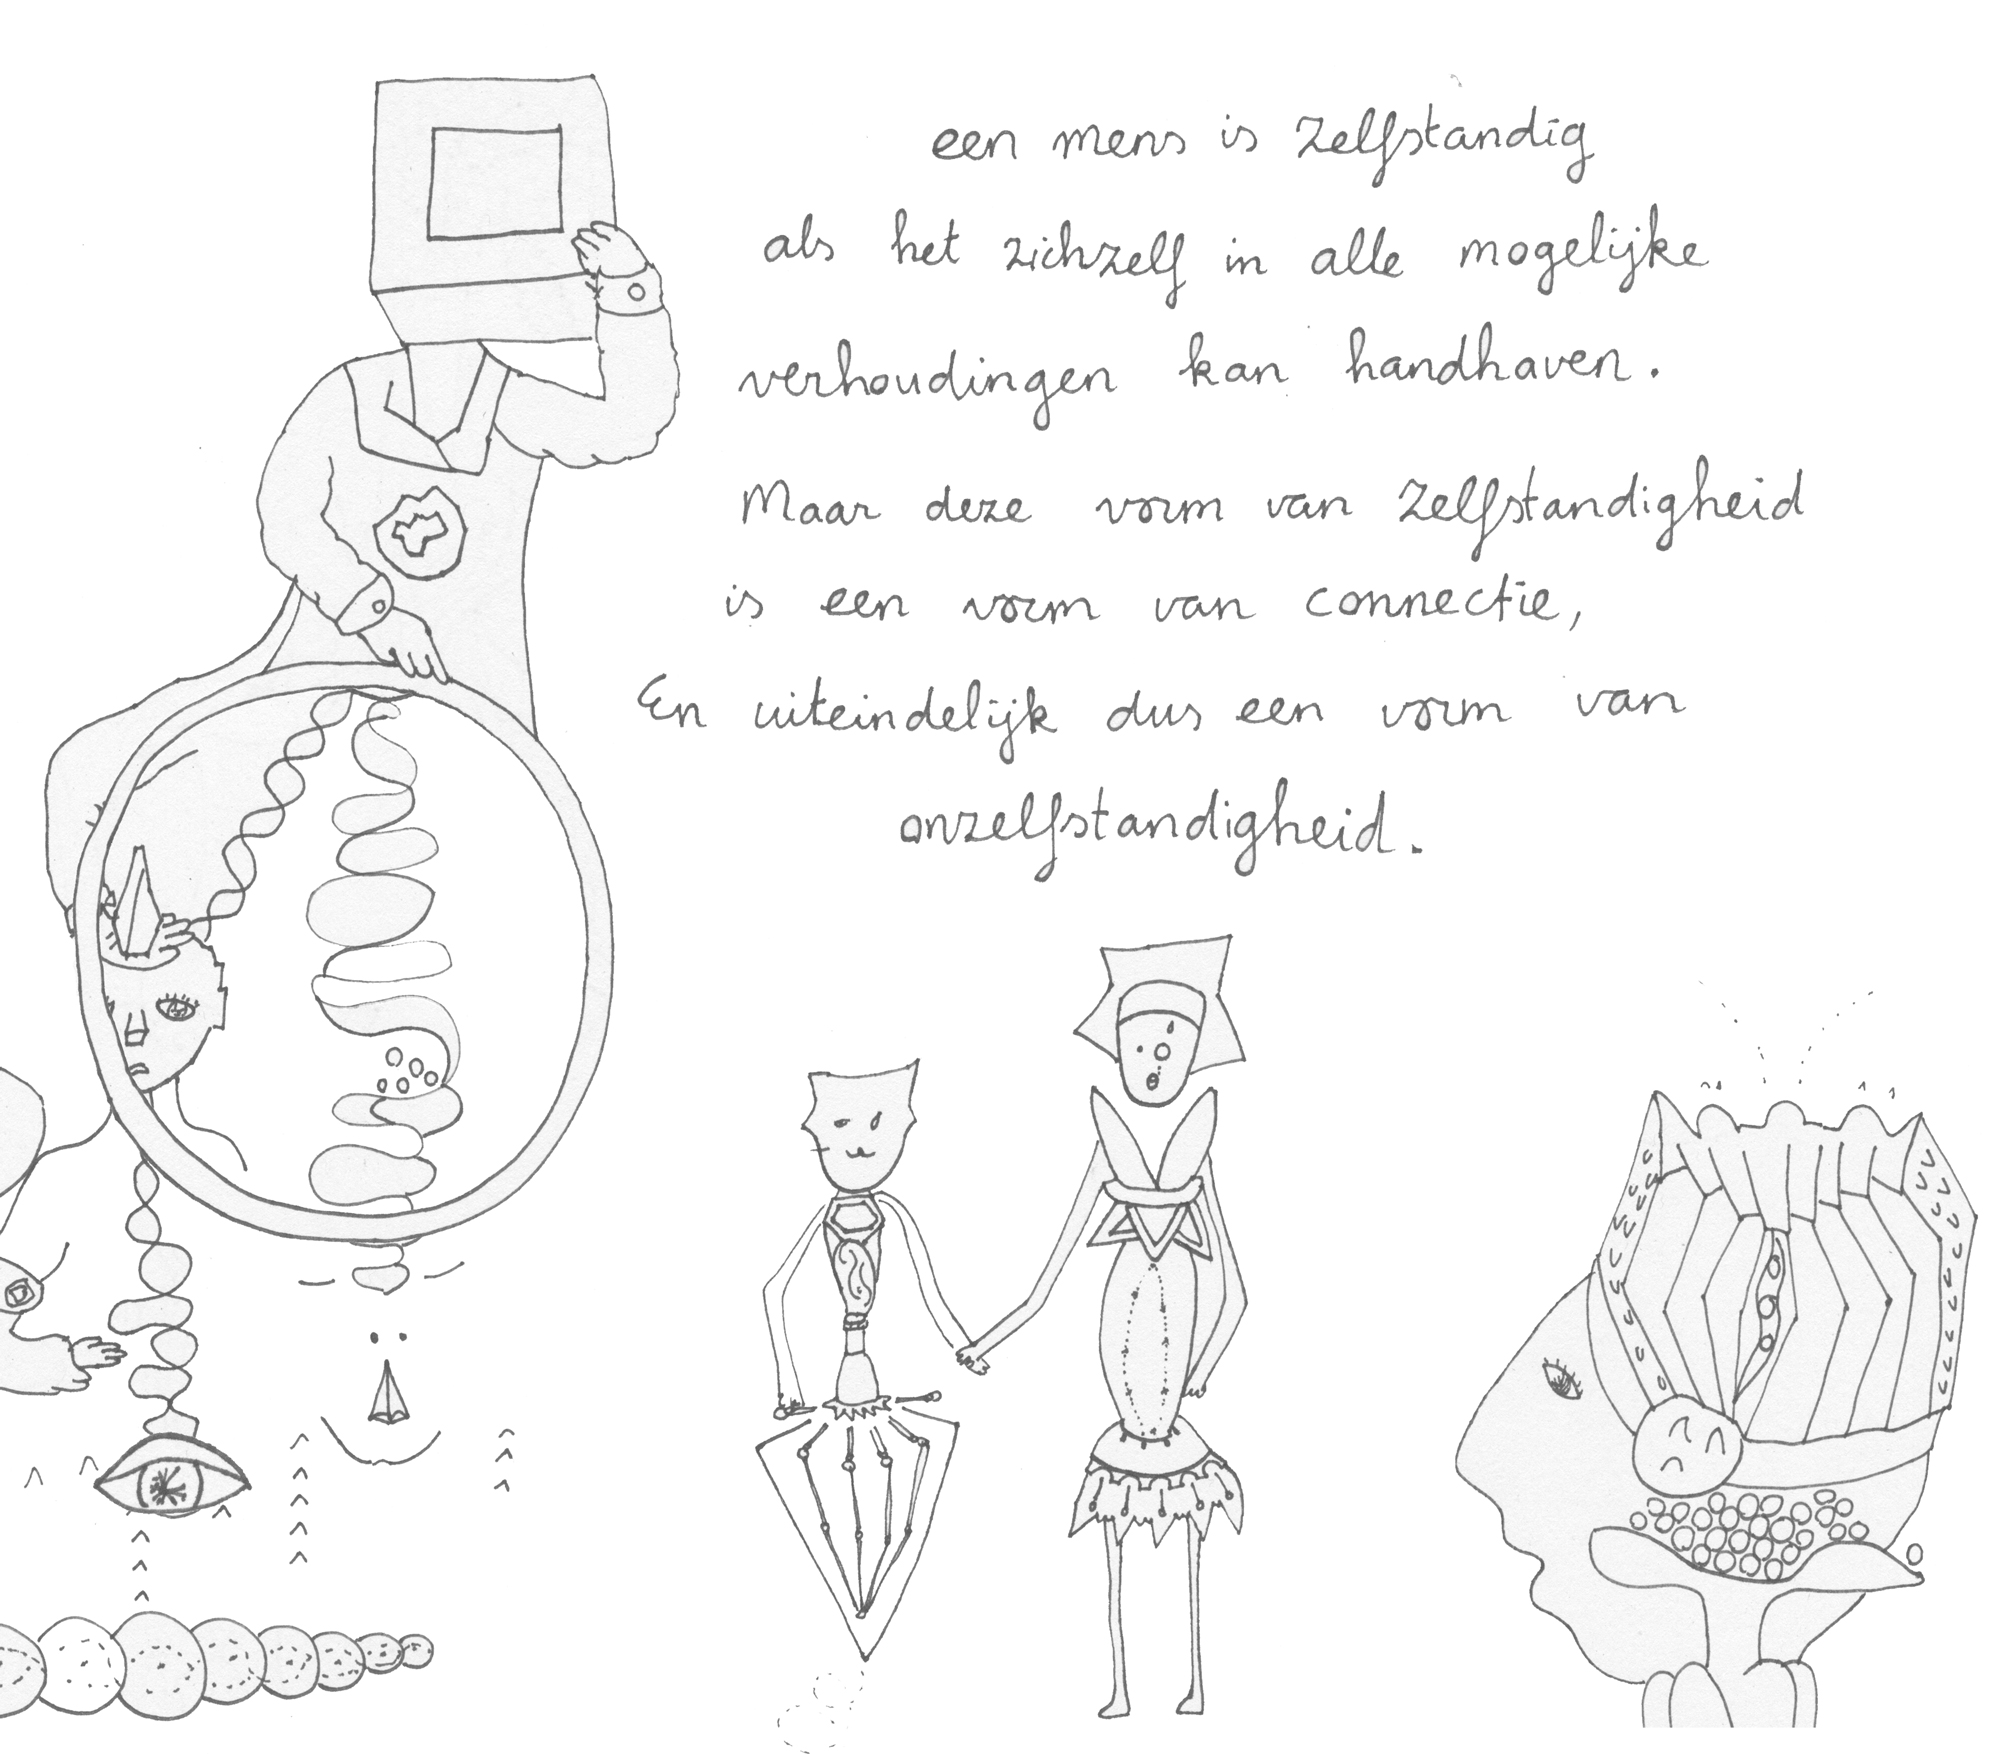 een mens is zelfstandig
als het zichzelf in alle mogelijke
verhoudingen kan handhaven.
Maar deze vorm van zelfstandigheid
is een vorm van connectie,
En uiteindelijk dus een vorm van
onzelfstandigheid.